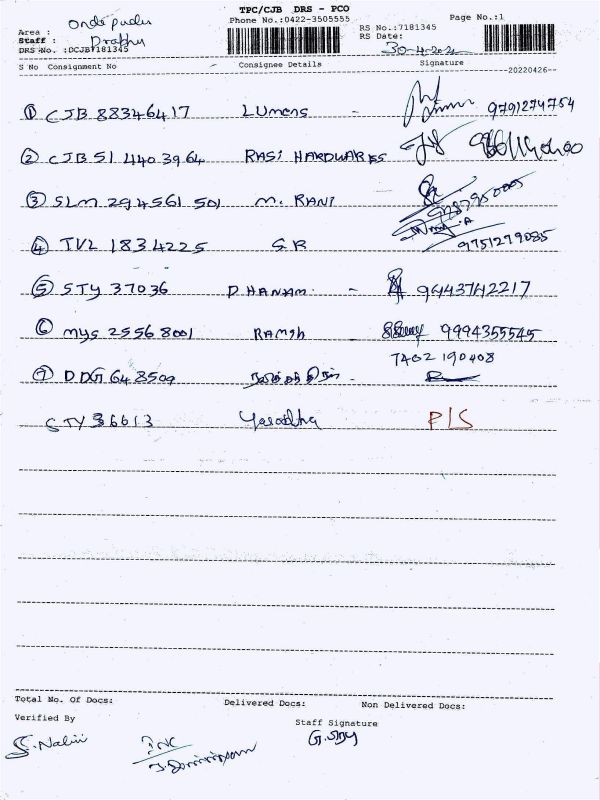 TPC/CJB DRS - PCO
Phone No.:0422-3505555 Page No.:1
Area : Ondi pudur RS No.:7181345
Staff : Prabhu RS Date: 30-4-202
DRS No. :DCJB7181345
S No Consignment No Consignee Details Signature
20220426
① CJB 88346417 LUMENS - 9791274754
② CJB 51 440 3964 RASI HARDWARES
③ SLM 294561 501 M. RANI
④ TVL 1834225 S.R 9751279085
⑤ STY 37036 DHANAM. - 9443742217
⑥ MYS 25568001 RAMSH 9994355545
7402 190408
⑦ DDG 648509
STY 36613 Yasodha P/S
Total No. Of Docs: Delivered Docs: Non Delivered Docs:
Verified By Staff Signature
S. Nalini